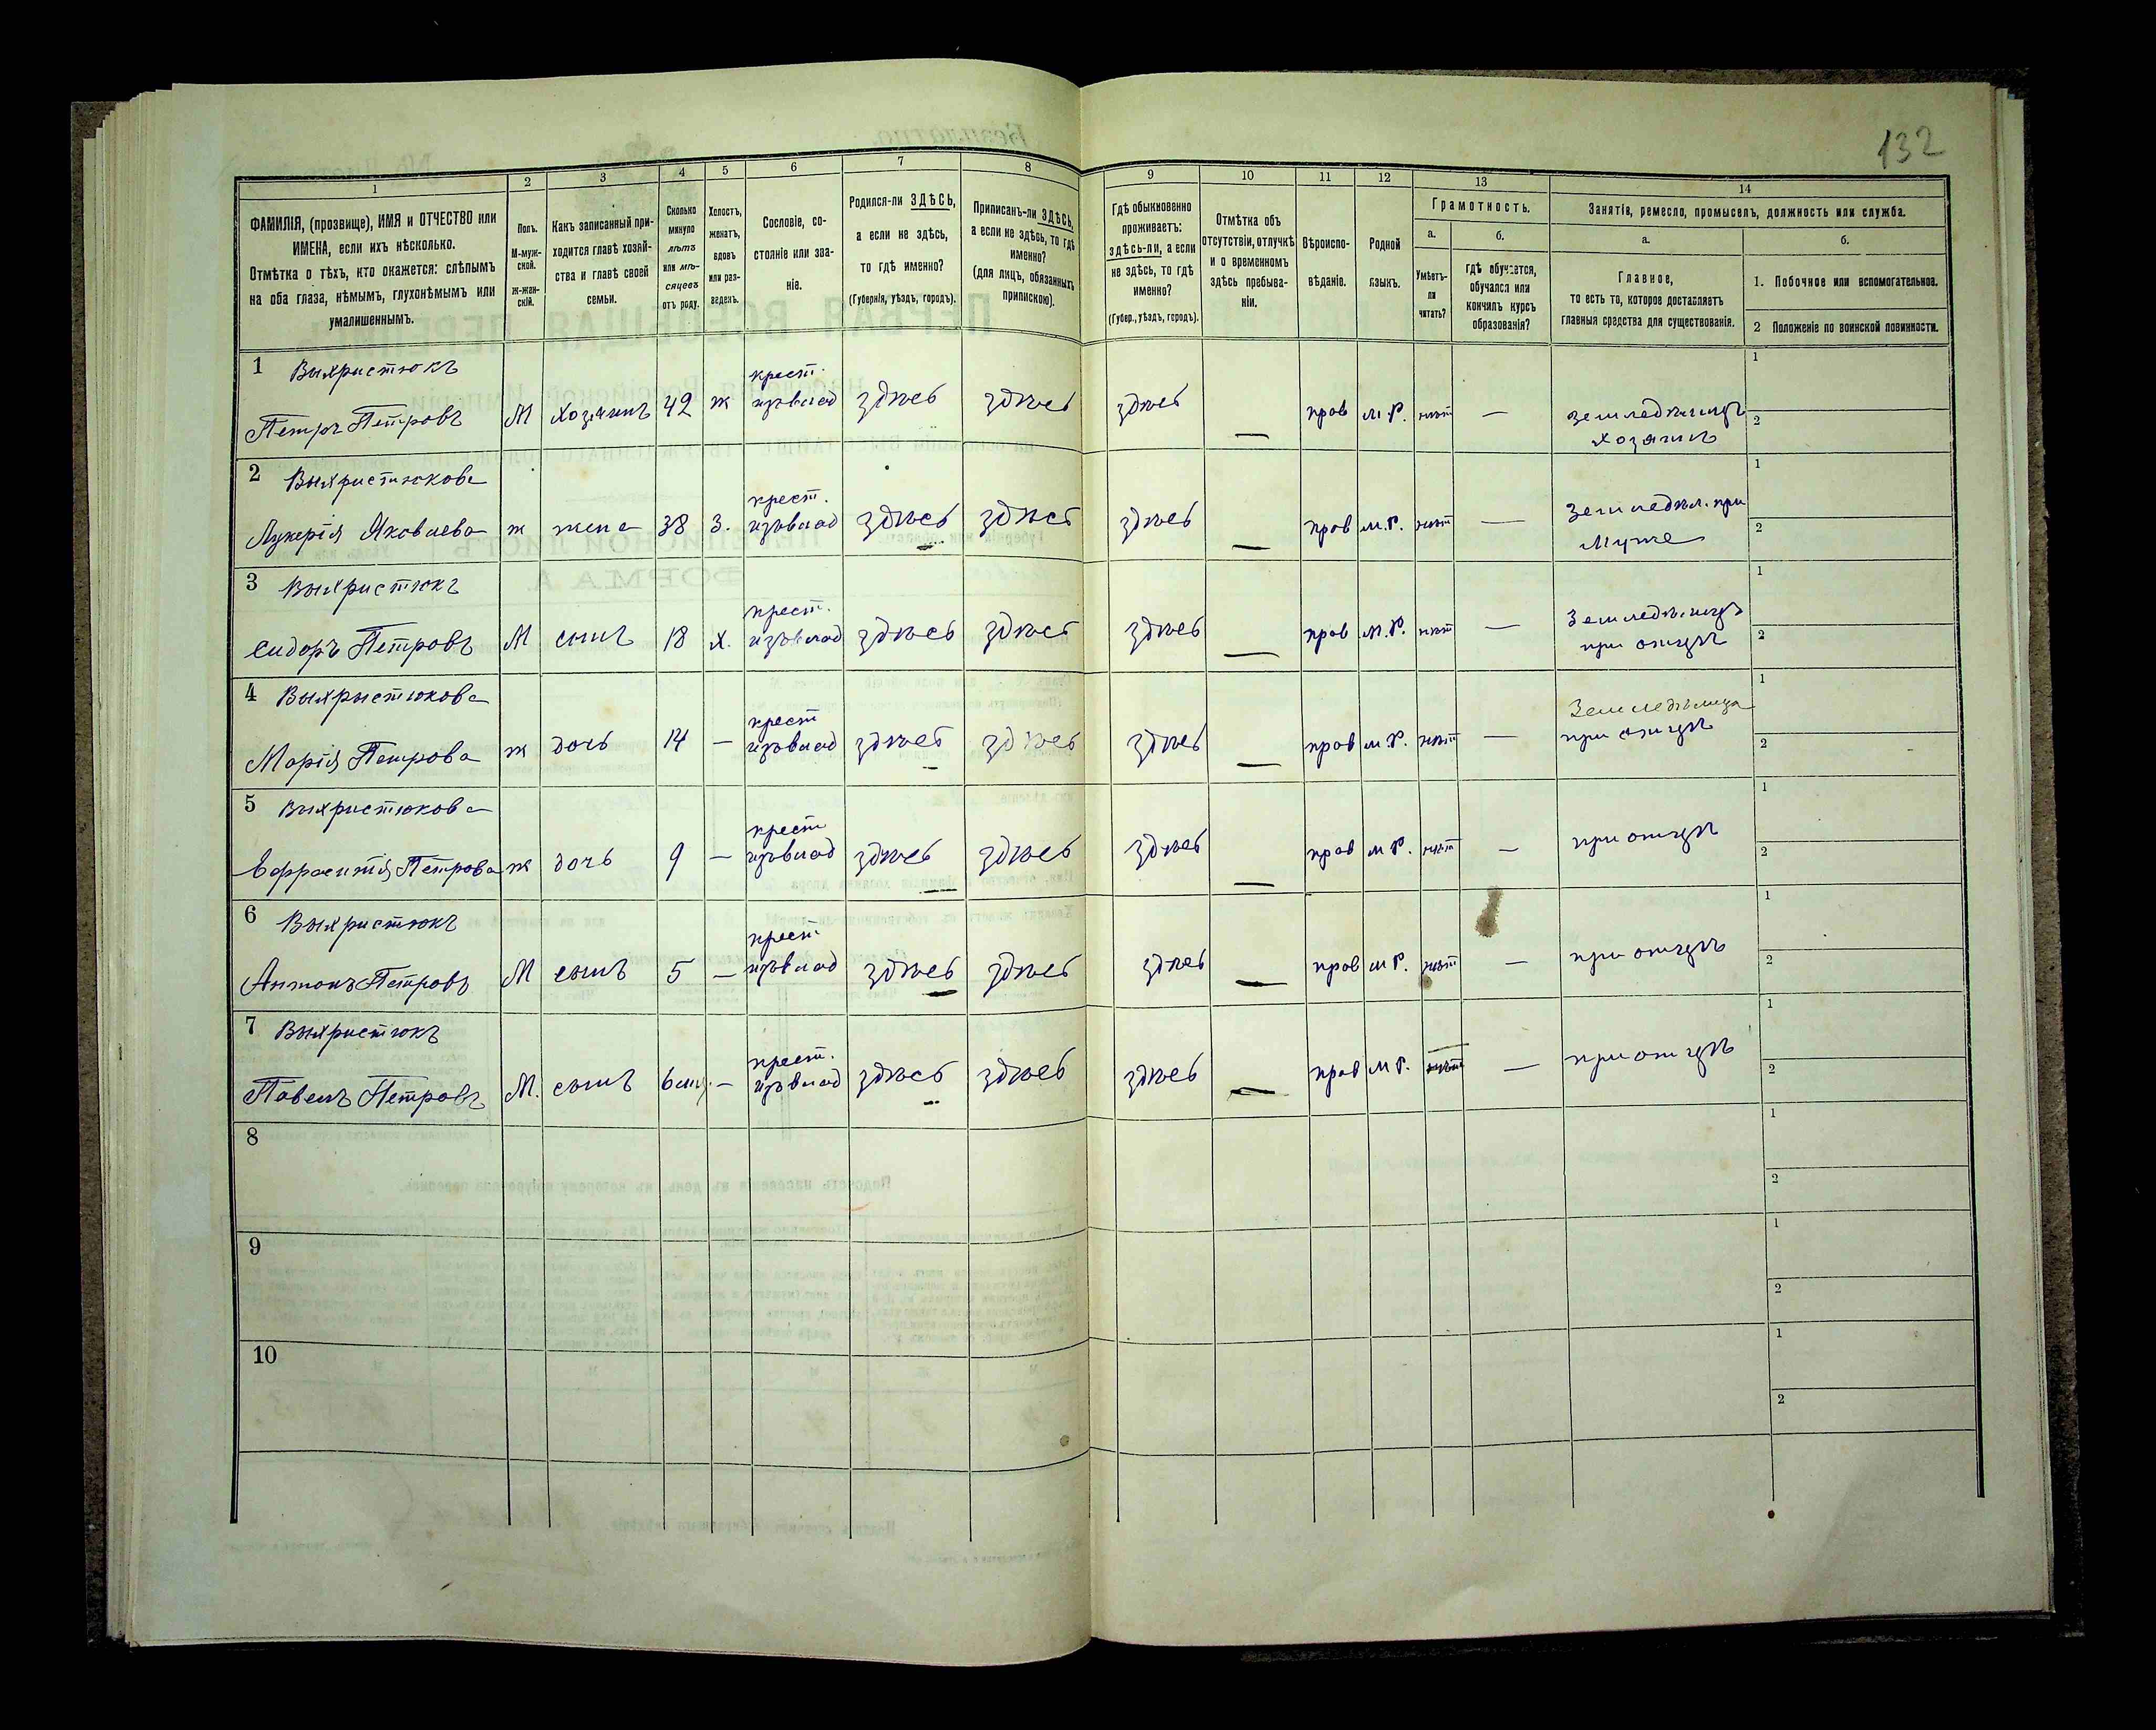 132
1 2 3 4 5 6 7 8 9 10 11 12 13 14
ФАМИЛІЯ, (прозвище), ИМЯ и ОТЧЕСТВО или ИМЕНА, если ихъ нѣсколько.
Отмѣтка о тѣхъ, кто окажется: слѣпымъ на оба глаза, нѣмымъ, глухонѣмымъ или умалишеннымъ.
Полъ. М-мужской. ж-женскій.
Какъ записанный приходится главѣ хозяйства и главѣ своей семьи.
Сколько минуло лѣтъ или мѣсяцевъ отъ роду.
Холостъ, женатъ, вдовъ или разведенъ.
Сословіе, состояніе или званіе.
Родился-ли ЗДѢСЬ, а если не здѣсь, то гдѣ именно?
(Губернія, уѣздъ, городъ).
Приписанъ-ли ЗДѢСЬ, а если не здѣсь, то гдѣ именно?
(для лицъ, обязанныхъ припискою).
Гдѣ обыкновенно проживаетъ: здѣсь-ли, а если не здѣсь, то гдѣ именно?
(Губер., уѣздъ, городъ).
Отмѣтка объ отсутствіи, отлучкѣ и о временномъ здѣсь пребываніи.
Вѣроисповѣданіе.
Родной языкъ.
Грамотность.
а. Умѣетъ-ли читать?
б. гдѣ обучается, обучался или кончилъ курсъ образованія?
Занятіе, ремесло, промыселъ, должность или служба.
а. Главное, то есть то, которое доставляетъ главныя средства для существованія.
б. 1. Побочное или вспомогательное.
2 Положеніе по воинской повинности.
1 Выхристюкъ крест. 1
Петръ Петровъ М хозяинъ 42 ж изъ влад здѣсь здѣсь здѣсь — прав м.р. нѣтъ — Земледѣлецъ 2
хозяинъ
2 Выхристюкова крест. 1
Лукерія Яковлева ж жена 38 з. изъ влад здѣсь здѣсь здѣсь — прав м.р. нѣтъ — Земледѣл. при 2
муже
3 Выхристюкъ крест. 1
Сидоръ Петровъ М сынъ 18 х. изъ влад здѣсь здѣсь здѣсь — прав м.р. нѣтъ — Земледѣлецъ 2
при отцѣ
4 Выхрыстюкова крест Земледѣлица 1
Марія Петрова ж дочь 14 — изъ влад здѣсь здѣсь здѣсь — прав м.р. нѣтъ — при отцѣ 2
5 Выхристюкова крест 1
Ефросинія Петрова ж дочь 9 — изъ влад здѣсь здѣсь здѣсь — прав м р. нѣтъ — при отцѣ 2
6 Выхристюкъ крест 1
Антонъ Петровъ М сынъ 5 — изъ влад здѣсь здѣсь здѣсь — прав м р. нѣтъ — при отцѣ 2
7 Выхристюкъ крест. 1
Павелъ Петровъ М. сынъ 6 — изъ влад здѣсь здѣсь здѣсь — прав м р. — при отцѣ 2
8 1
2
9 1
2
10 1
2